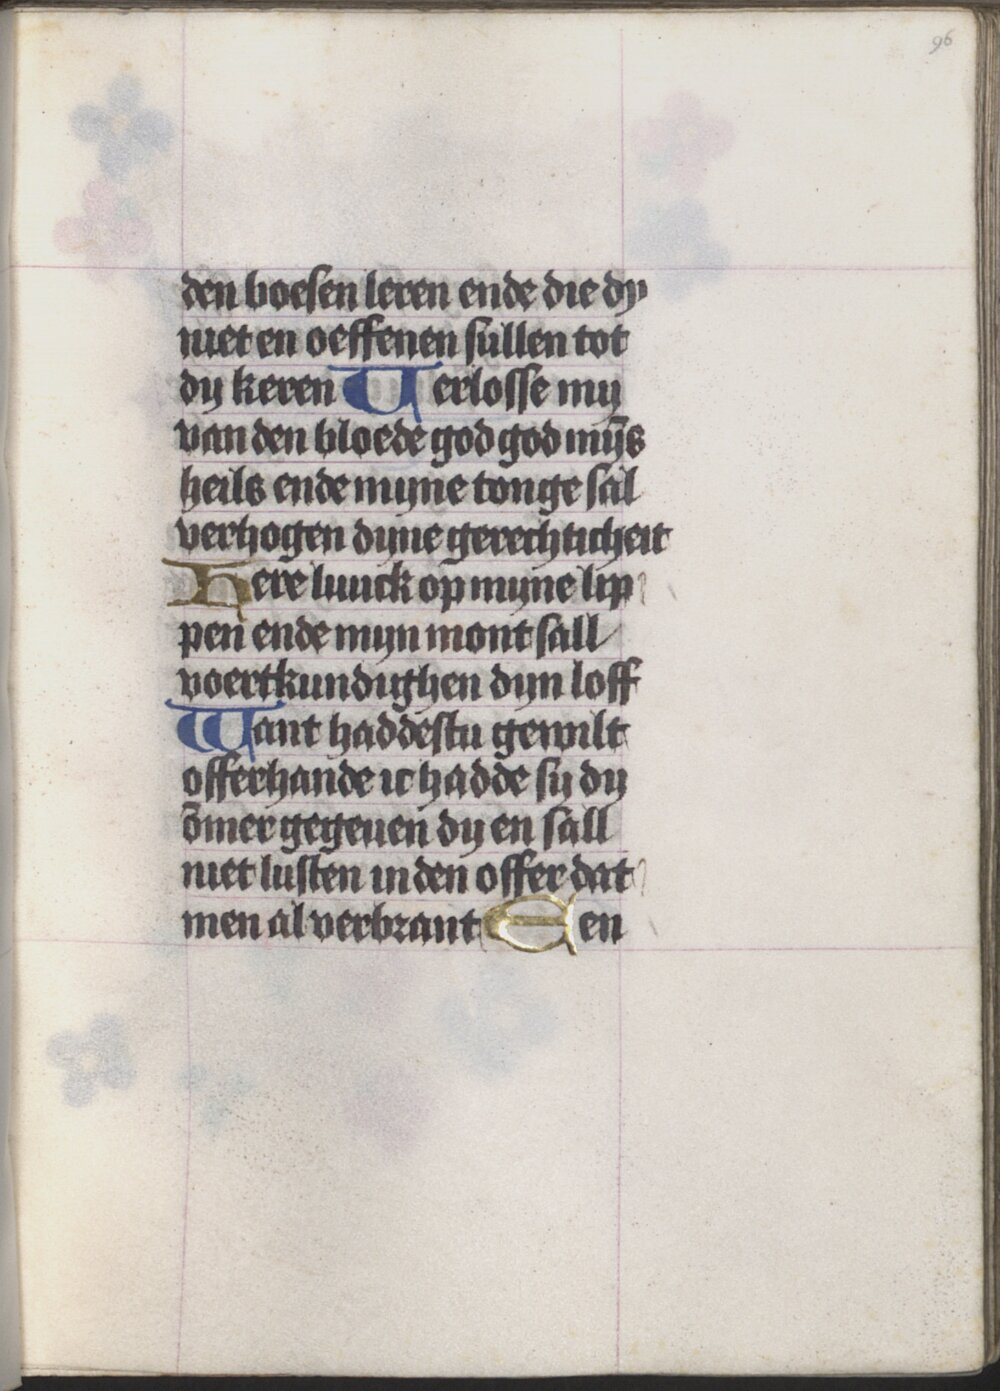 96
den boesen leren ende die dy
niet en oeffenen sullen tot
dy keren Verlosse my
van den bloede god god mÿs
heils ende myne tonge sal
verhogen dyne gerechticheit
Here luuck op myne lip
pen ende myn mont sall
voertkundighen dyn loff
Want haddestu gewilt
offerhande ic hadde sy dy
ōmer gegeuen dy en sall
niet lusten in den offer dat
men al verbrant Een